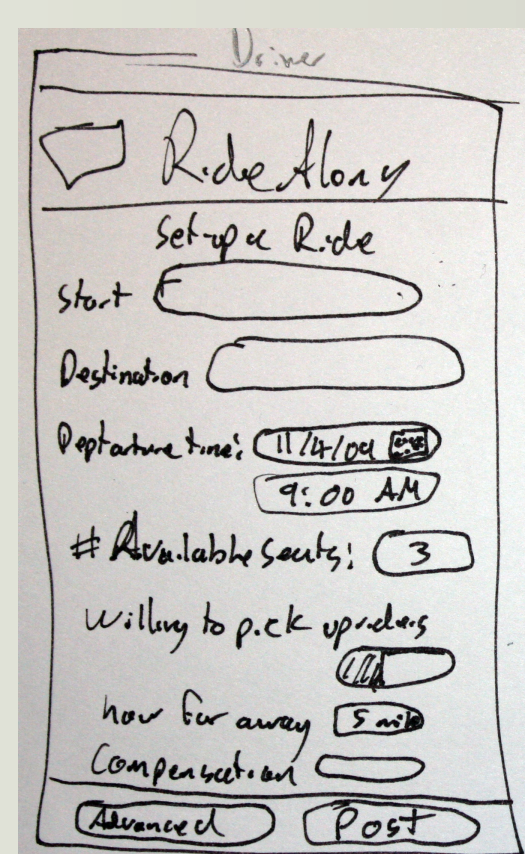 Driver
Ride Along
Set-up a Ride
Start
Destination
Departure time: 11/4/09
9:00 AM
# Available Seats: 3
Willing to pick up riders
how far away 5 mile
Compensation
Advanced Post